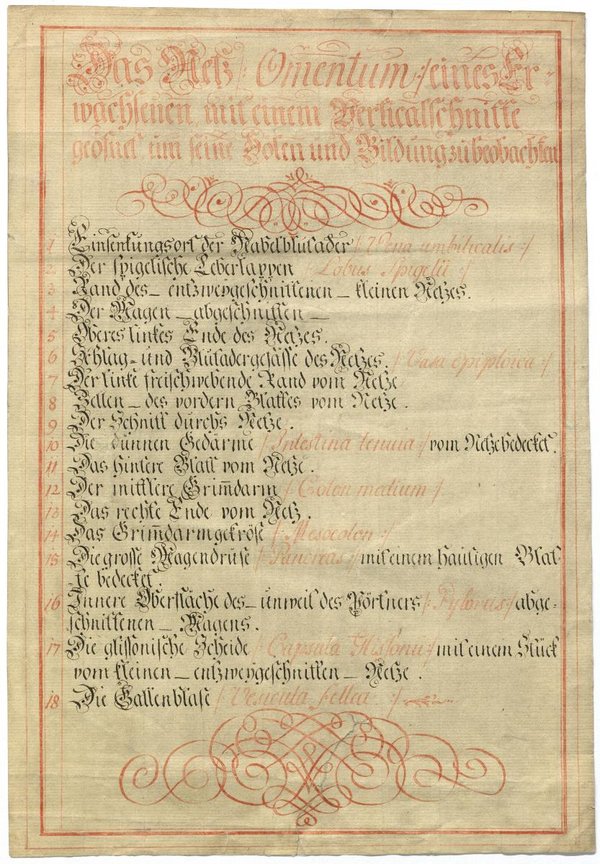 Das Netz /: Omentum :/ eines Er-
wachsenen, mit einem Verticalschnitte
geöfnet um seine Holen und Bildung zu beobachten
1 Einsenkungsort der Nabelblutader /: Vena umbilicalis :/
2 Der spigelische Leberlappen /: Lobus Spigelii :/
3 Rand des _ entzweygeschnittenen _ kleinen Netzes.
4 Der Magen _ abgeschnitten _
5 Oberes linkes Ende des Netzes.
6 Schlag- und Blutadergefässe des Netzes. /: Vasa epiploica :/
7 Der linke freischwebende Rand vom Netze
8 Zellen _ des vordern Blattes vom Netze.
9 Der Schnitt durchs Netze.
10 Die dünnen Gedärme /: Intestina tenuia :/ vom Netze bedecket.
11 Das hintere Blatt vom Netze.
12 Der mittlere Grim̄darm /: Colon medium :/
13 Das rechte Ende vom Netz.
14 Das Grim̄darmgekröse /: Mesocolon :/
15 Die grosse Magendrüse /: Pancreas :/ mit einem häutigen Blat-
te bedecket.
16 Innere Oberfläche des _ unweit des Pförtners /: Pylorus :/ abge-
schnittenen _ Magens.
17 Die glissonische Scheide /: Capsula Glissonii :/ mit einem Stück
vom kleinen _ entzweygeschnitten _ Netze.
18 Die Gallenblase /: Vesicula fellea :/